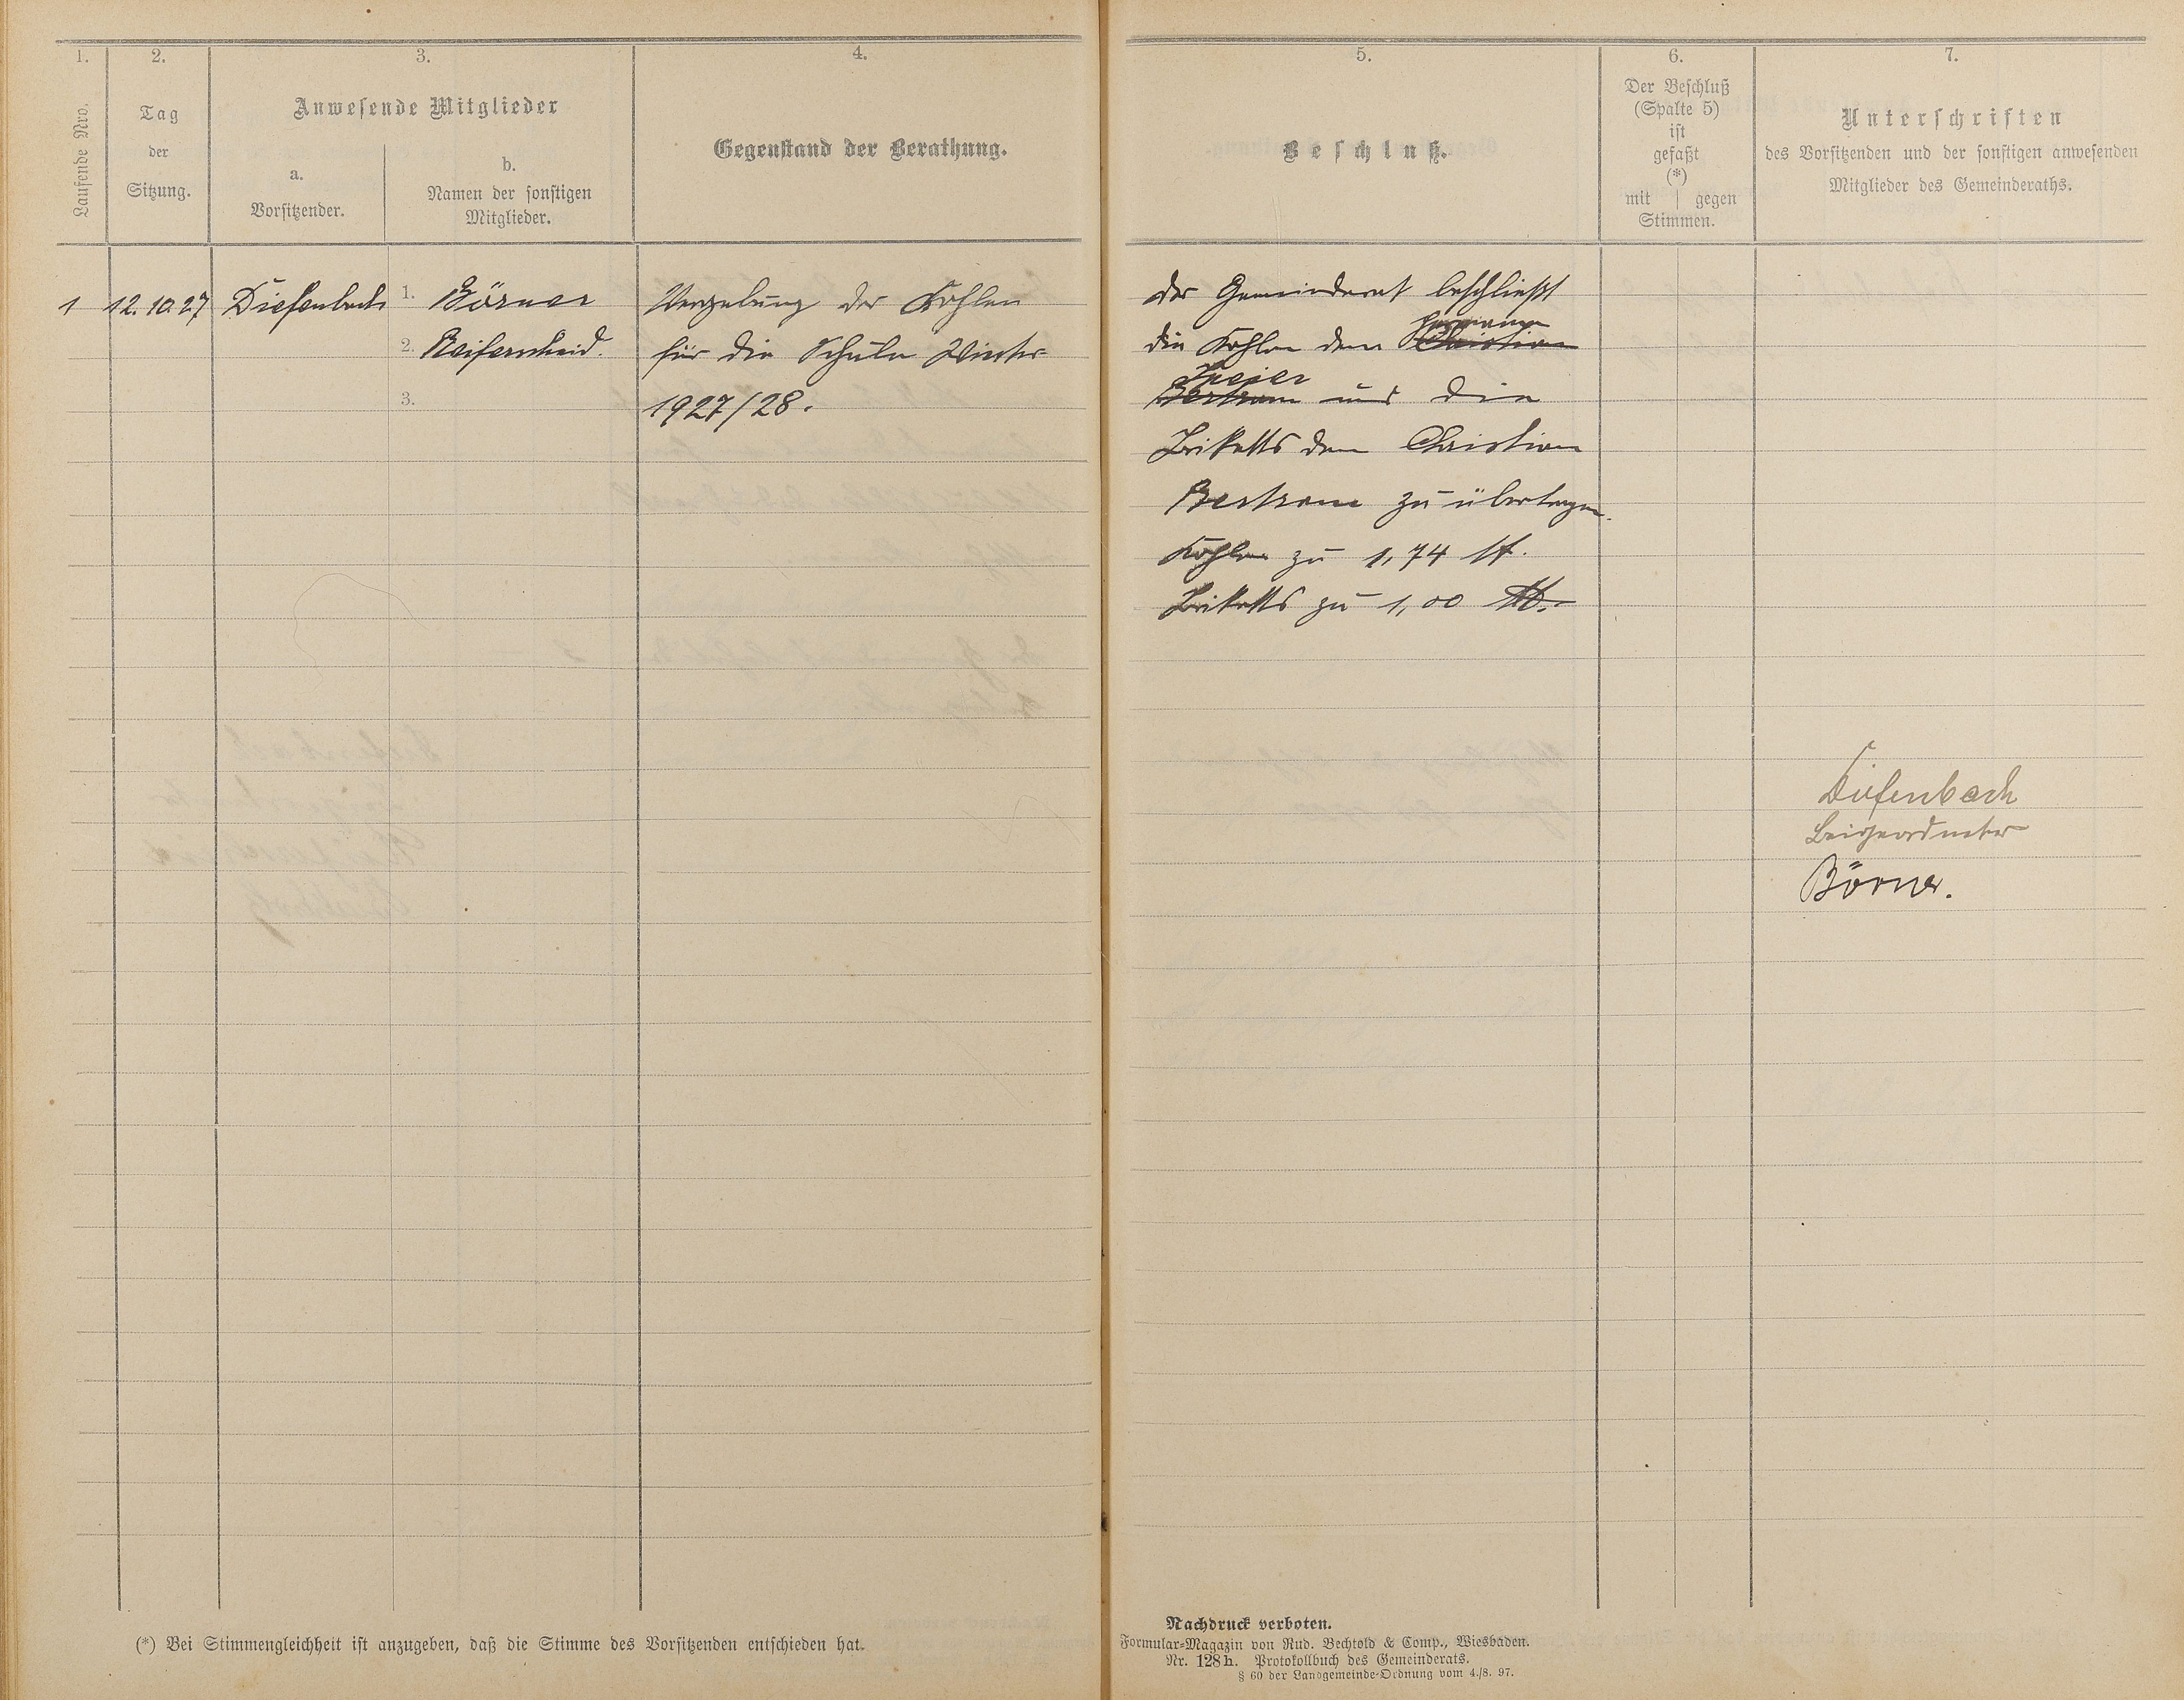 1.
2.
3.
4.
Laufende Nro.
Tag
der
Sitzung.
Anwesende Mitglieder
a.
Vorsitzender.
b.
Namen der sonstigen
Mitglieder.
Gegenstand der Berathung.
1 12.10.27 Diefenbach 1. Börner Vergebung der Kohlen
2. Reiferscheid. für die Schule Winter
3. 1927/28.
(*) Bei Stimmengleichheit ist anzugeben, daß die Stimme des Vorsitzenden entschieden hat.
5.
6.
7.
Beschluß.
Der Beschluß
(Spalte 5)
ist
gefaßt
(*)
mit gegen
Stimmen.
Unterschriften
des Vorsitzenden und der sonstigen anwesenden
Mitglieder des Gemeinderaths.
Der Gemeinderat beschließt
Hermann
die Kohlen dem Christian
Speier
Bertram und die
Briketts dem Christian
Bertram zu übertragen.
Kohlen zu 1,74 M.
Briketts zu 1,00 M.
Diefenbach
Beigeordneter
Börner.
Nachdruck verboten.
Formular-Magazin von Rud. Bechtold & Comp., Wiesbaden.
Nr. 128h. Protokollbuch des Gemeinderats.
§ 60 der Landgemeinde-Ordnung vom 4./8. 97.